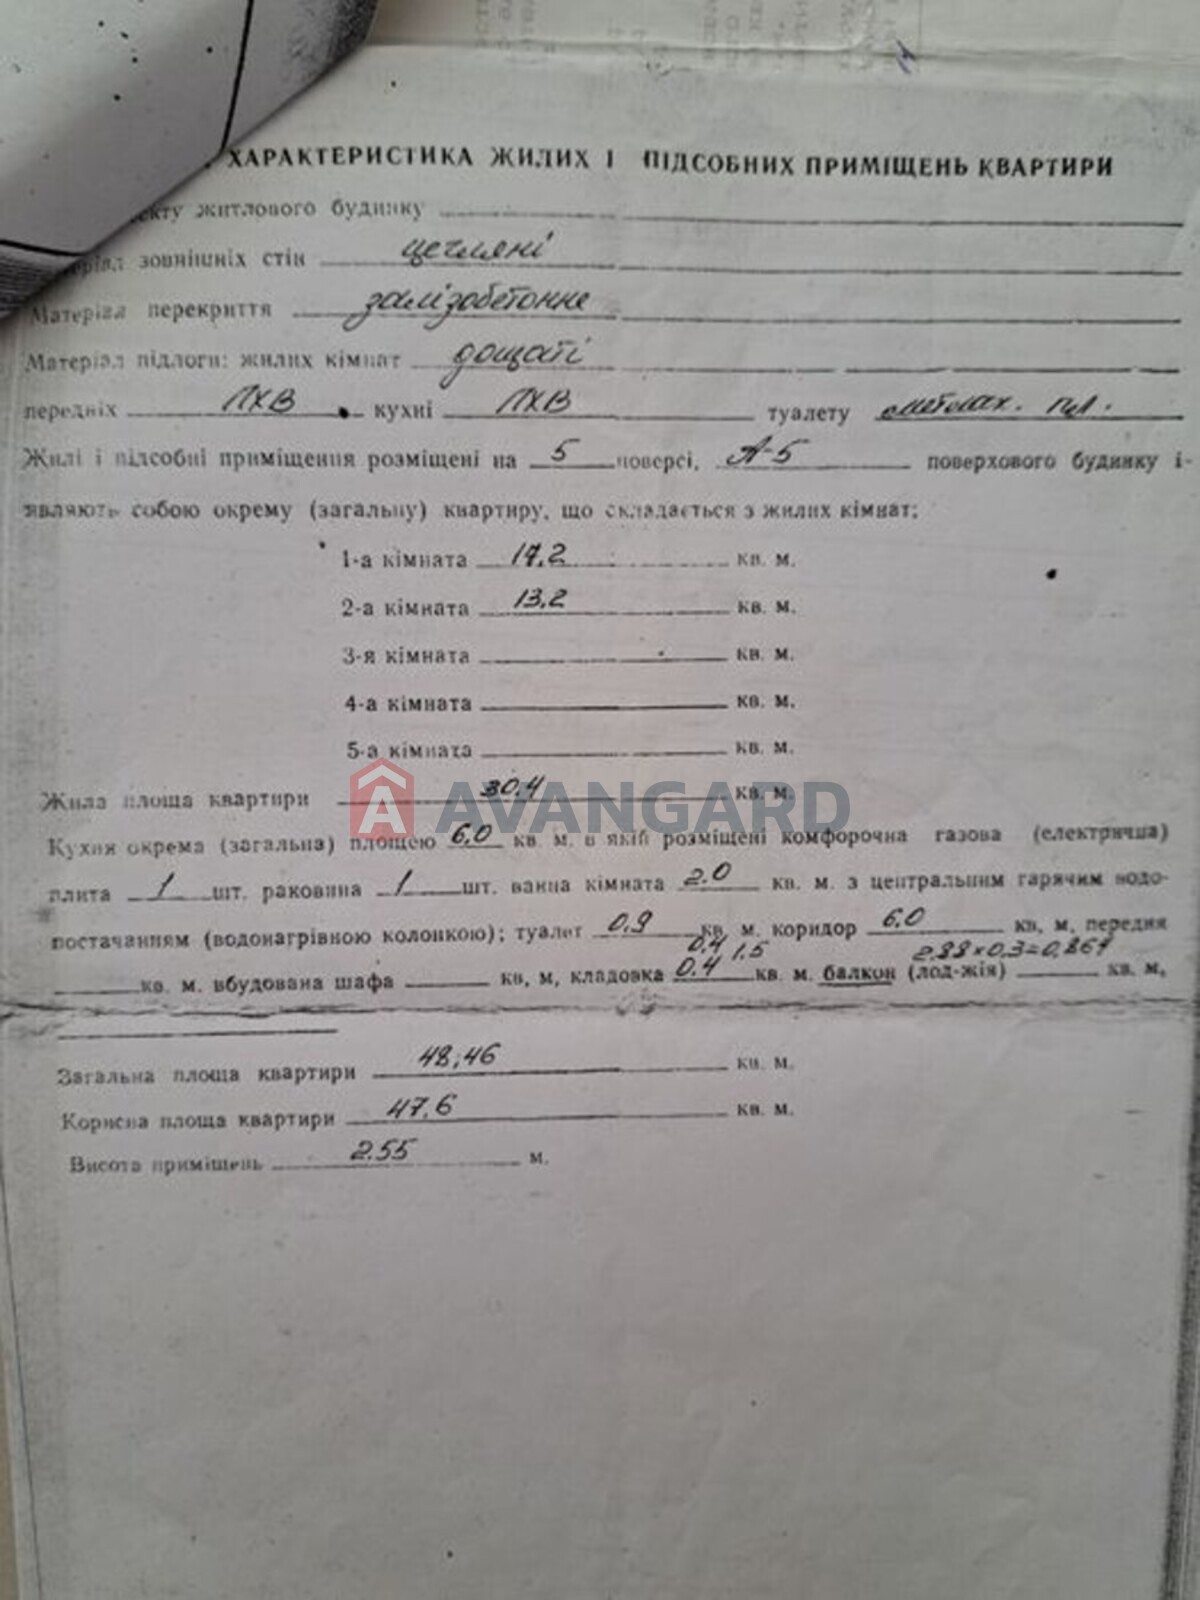 ХАРАКТЕРИСТИКА ЖИЛИХ І ПІДСОБНИХ ПРИМІЩЕНЬ КВАРТИРИ
житлового будинку
зовнішніх стін цегляні
Матеріал перекриття залізобетонне
Матеріал підлоги: жилих кімнат дощаті
передніх ПХВ кухні ПХВ туалету метлах. пл.
Жилі і підсобні приміщення розміщені на 5 поверсі, А-5 поверхового будинку і-
являють собою окрему (загальну) квартиру, що складається з жилих кімнат;
1-а кімната 17.2 кв. м.
2-а кімната 13.2 кв. м.
3-я кімната кв. м.
4-а кімната кв. м.
5-а кімната кв. м.
Жила площа квартири 30.4 кв. м.
AVANGARD
Кухня окрема (загальна) площею 6.0 кв. м. в якій розміщені комфорочна газова (електрична)
плита 1 шт. раковина 1 шт. ванна кімната 2.0 кв. м. з центральним гарячим водо-
постачанням (водонагрівною колонкою); туалет 0.9 кв. м. коридор 6.0 кв, м, передня
0.4 1.5 2.88×0.3=0.864
кв. м. вбудована шафа кв, м, кладовка 0.4 кв. м. балкон (лод-жія) кв. м,
Загальна площа квартири 48,46 кв. м.
Корисна площа квартири 47.6 кв. м.
Висота приміщень 2.55 м.